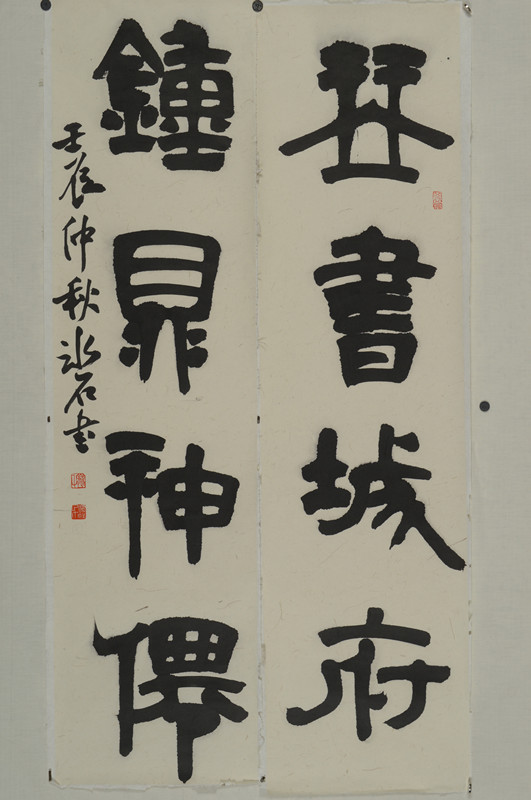 琴書城府
鐘鼎神僊
壬辰仲秋冰石書